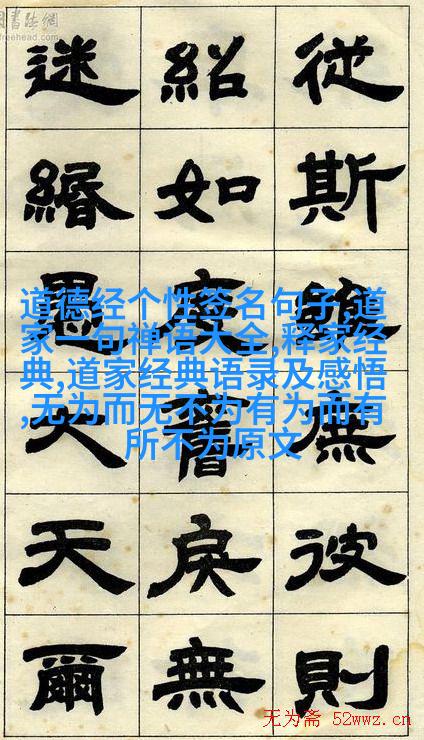 書法網
freehead.com
從斯廡彼則
紹如度戾無
迷緡愚大天爾
道德经个性签名句子,道
家一句禅语大全,释家经
典,道家经典语录及感悟
,无为而无不为有为而有
所不为原文
无为斋 52wwz.cn